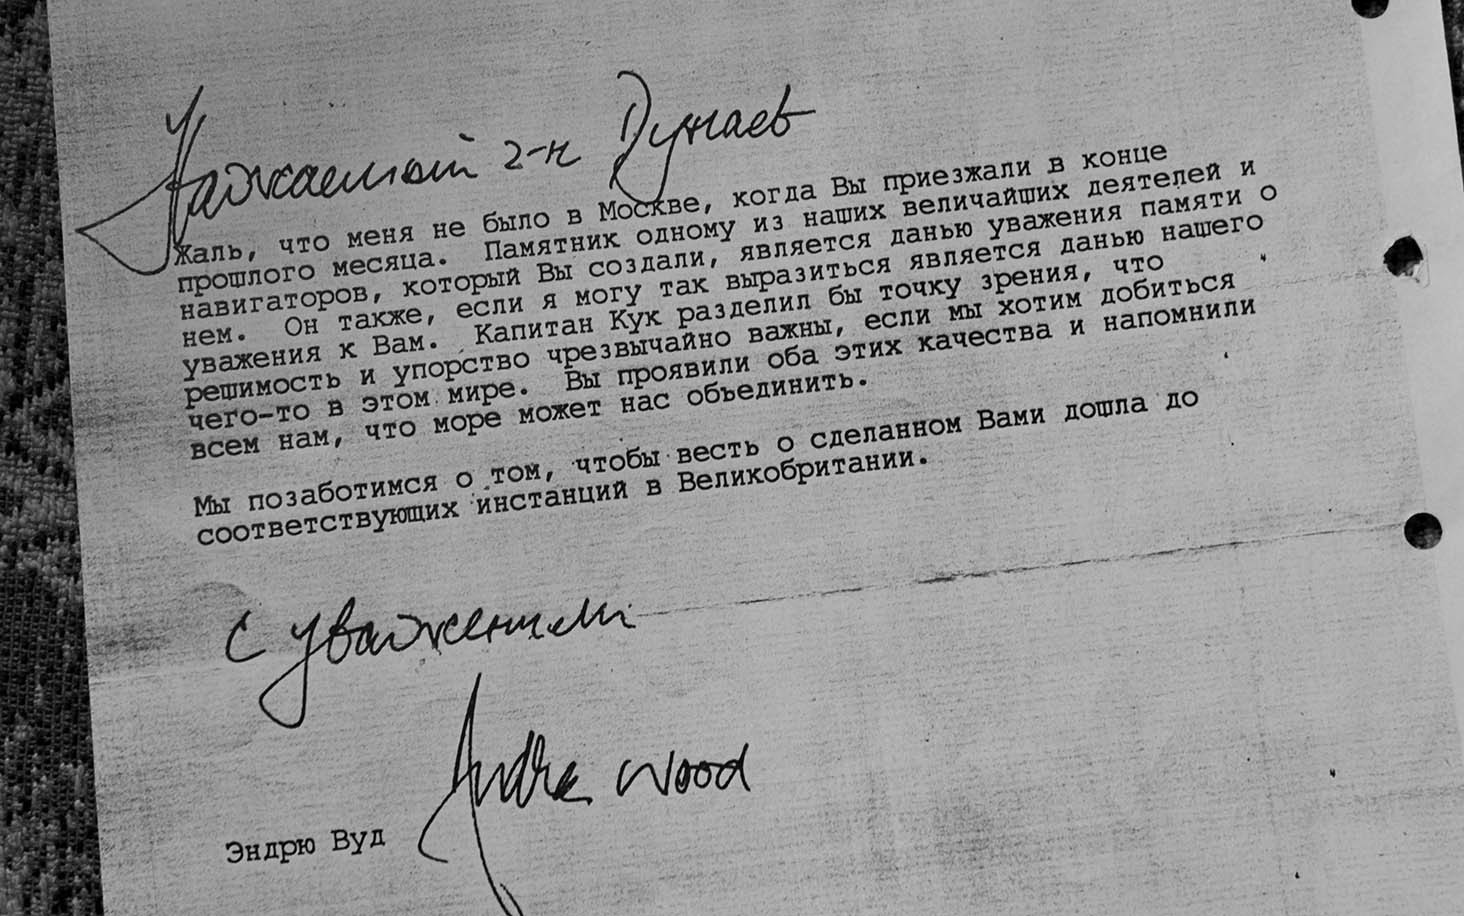 Уважаемый г-н Дунаев
Жаль, что меня не было в Москве, когда Вы приезжали в конце
прошлого месяца. Памятник одному из наших величайших деятелей и
навигаторов, который Вы создали, является данью уважения памяти о
нем. Он также, если я могу так выразиться является данью нашего
уважения к Вам. Капитан Кук разделил бы точку зрения, что
решимость и упорство чрезвычайно важны, если мы хотим добиться
чего-то в этом мире. Вы проявили оба этих качества и напомнили
всем нам, что море может нас объединить.
Мы позаботимся о том, чтобы весть о сделанном Вами дошла до
соответствующих инстанций в Великобритании.
С уважением
Andrew Wood
Эндрю Вуд